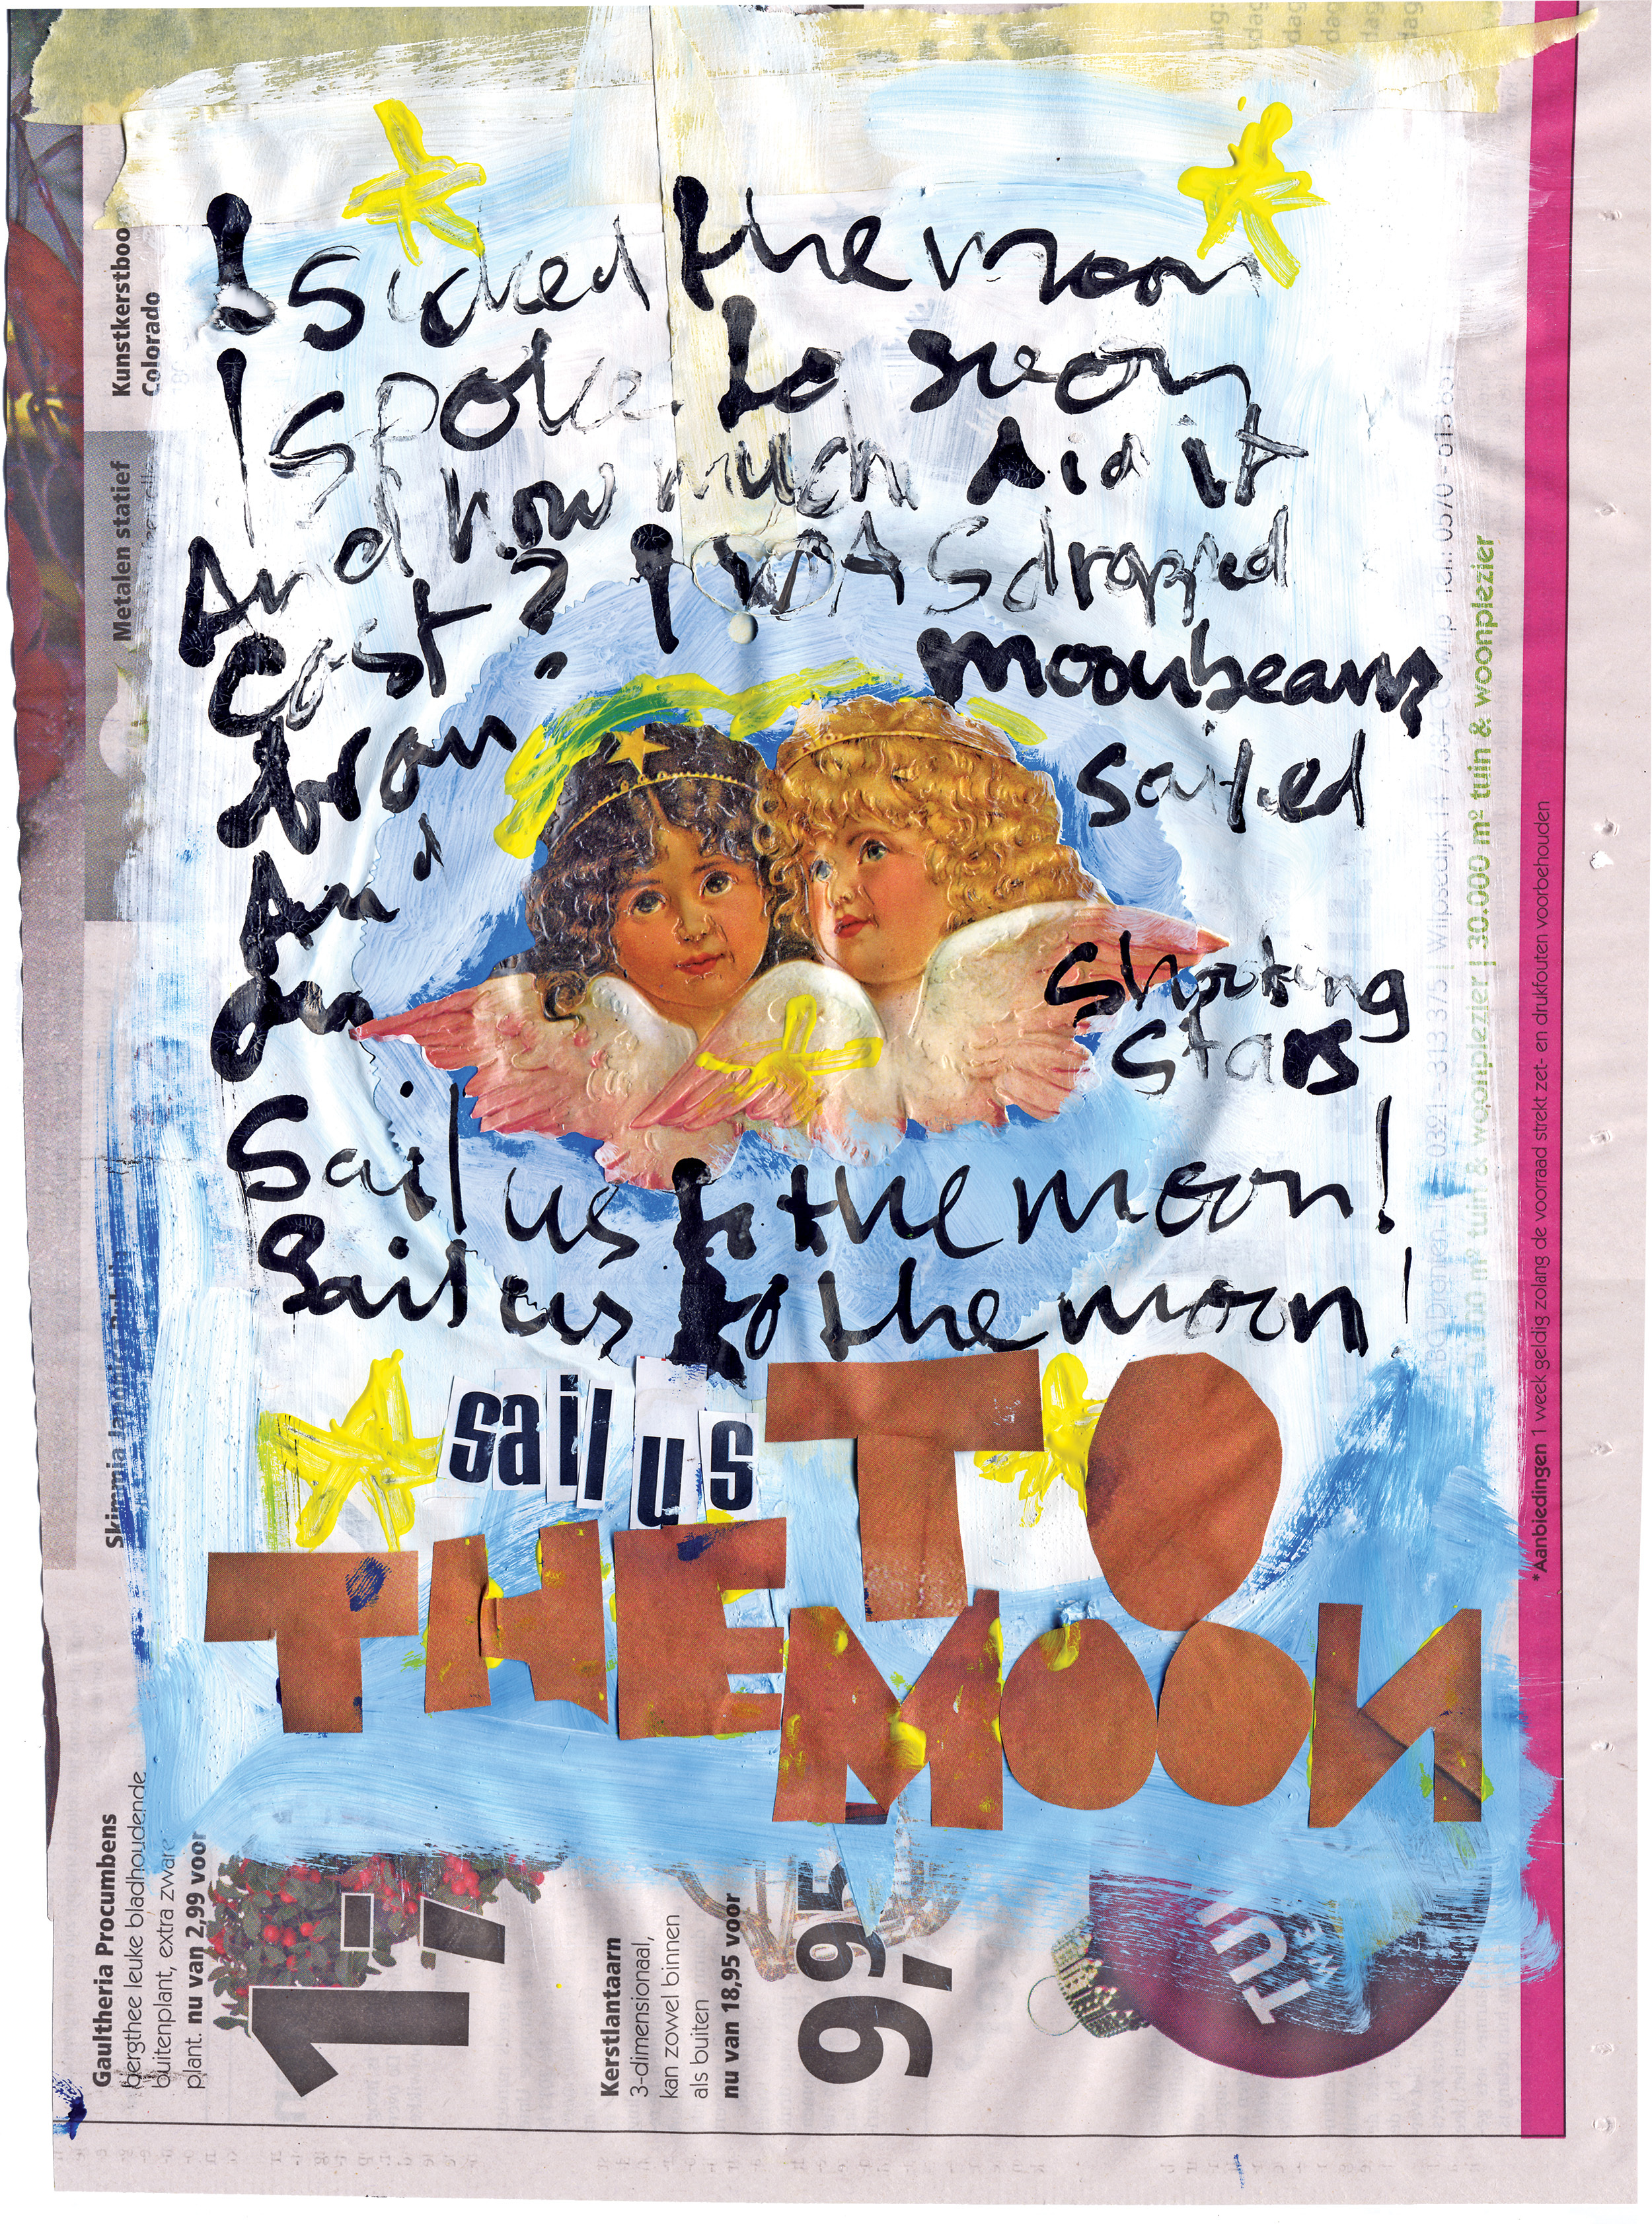 I sucked the moon
I spoke to soon
And how much did it
cost? I WAS dropped
from moonbeams
And sailed
on shooting
stars
Sail us to the moon!
Sail us to the moon!
sail us TO
THE MOON
Kunstkerstboom
Colorado
Metalen statief
Skimmia Japonica Rubella
Gaultheria Procumbens
bergthee leuke bladhoudende
buitenplant, extra zware
plant. nu van 2,99 voor
1,-
Kerstlantaarn
3-dimensionaal,
kan zowel binnen
als buiten
nu van 18,95 voor
9,95
TUI
30.000 m² tuin & woonplezier
*Aanbiedingen 1 week geldig zolang de voorraad strekt zet- en drukfouten voorbehouden